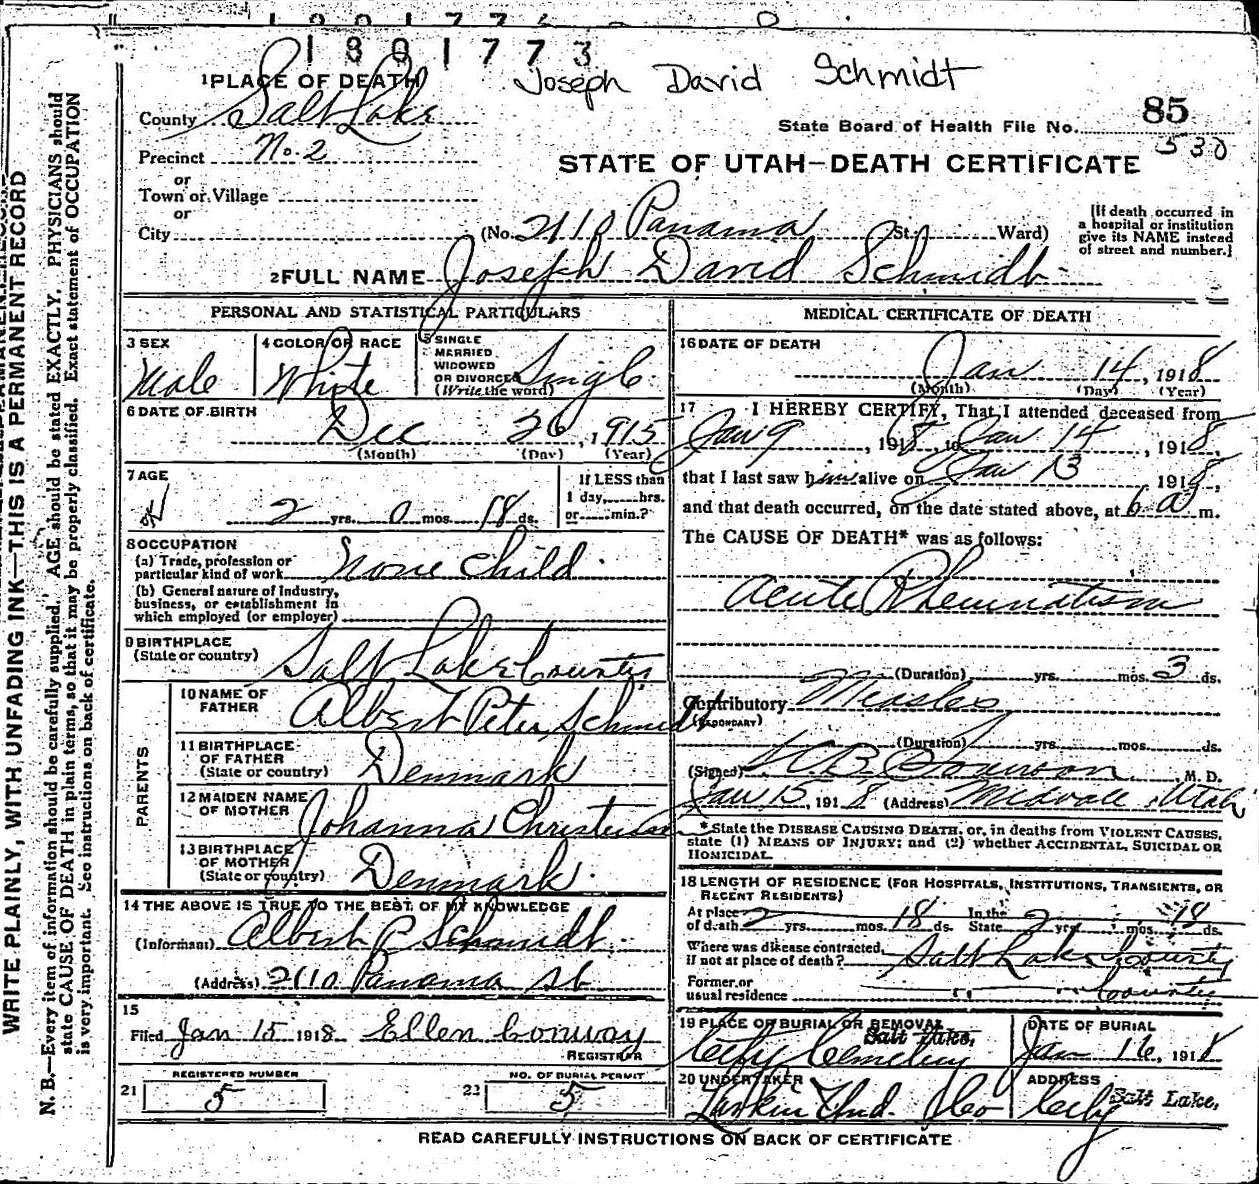 1801773
1 PLACE OF DEATH
Joseph David Schmidt
County Salt Lake
85
State Board of Health File No. 530
Precinct No. 2
STATE OF UTAH—DEATH CERTIFICATE
or
Town or Village
or
City (No. 2110 Panama St. Ward)
[If death occurred in
a hospital or institution
give its NAME instead
of street and number.]
2 FULL NAME Joseph David Schmidt
PERSONAL AND STATISTICAL PARTICULARS
3 SEX
Male
4 COLOR OR RACE
White
5 SINGLE
MARRIED
WIDOWED
OR DIVORCED
(Write the word)
Single
6 DATE OF BIRTH
Dec 26, 1915
(Month) (Day) (Year)
7 AGE
2 yrs. 0 mos. 18 ds.
If LESS than
1 day, hrs.
or min.?
8 OCCUPATION
(a) Trade, profession or
particular kind of work None Child
(b) General nature of Industry,
business, or establishment in
which employed (or employer)
9 BIRTHPLACE
(State or country) Salt Lake County
PARENTS
10 NAME OF
FATHER Albert Peter Schmidt
11 BIRTHPLACE
OF FATHER
(State or country) Denmark
12 MAIDEN NAME
OF MOTHER Johanna Christensen
13 BIRTHPLACE
OF MOTHER
(State or country) Denmark
14 THE ABOVE IS TRUE TO THE BEST OF MY KNOWLEDGE
(Informant) Albert P Schmidt
(Address) 2110 Panama St
15
Filed Jan 15 1918 Ellen Conway
REGISTRAR
REGISTERED NUMBER
21 5
NO. OF BURIAL PERMIT
22 5
MEDICAL CERTIFICATE OF DEATH
16 DATE OF DEATH
Jan 14, 1918
(Month) (Day) (Year)
17 I HEREBY CERTIFY, That I attended deceased from
Jan 9, 1918, to Jan 14, 1918,
that I last saw him alive on Jan 13 1918,
and that death occurred, on the date stated above, at 6 a m.
The CAUSE OF DEATH* was as follows:
Acute Rheumatism
(Duration) yrs. mos. 3 ds.
Contributory Measles
(SECONDARY)
(Duration) yrs. mos. ds.
(Signed) M. D.
Jan 15, 1918 (Address) Midvale, Utah
* State the DISEASE CAUSING DEATH, or, in deaths from VIOLENT CAUSES,
state (1) MEANS OF INJURY; and (2) whether ACCIDENTAL, SUICIDAL OR
HOMICIDAL.
18 LENGTH OF RESIDENCE (FOR HOSPITALS, INSTITUTIONS, TRANSIENTS, OR
RECENT RESIDENTS)
At place
of death 2 yrs. mos. 18 ds. In the
State 2 yrs. mos. 18 ds.
Where was disease contracted,
if not at place of death? Salt Lake County
Former or
usual residence County
19 PLACE OF BURIAL OR REMOVAL
Salt Lake,
City Cemetery
DATE OF BURIAL
Jan 16, 1918
20 UNDERTAKER
Larkin Und. Co
ADDRESS
City Salt Lake,
READ CAREFULLY INSTRUCTIONS ON BACK OF CERTIFICATE
WRITE PLAINLY, WITH UNFADING INK—THIS IS A PERMANENT RECORD
N. B.—Every item of information should be carefully supplied. AGE should be stated EXACTLY. PHYSICIANS should
state CAUSE OF DEATH in plain terms, so that it may be properly classified. Exact statement of OCCUPATION
is very important. See instructions on back of certificate.